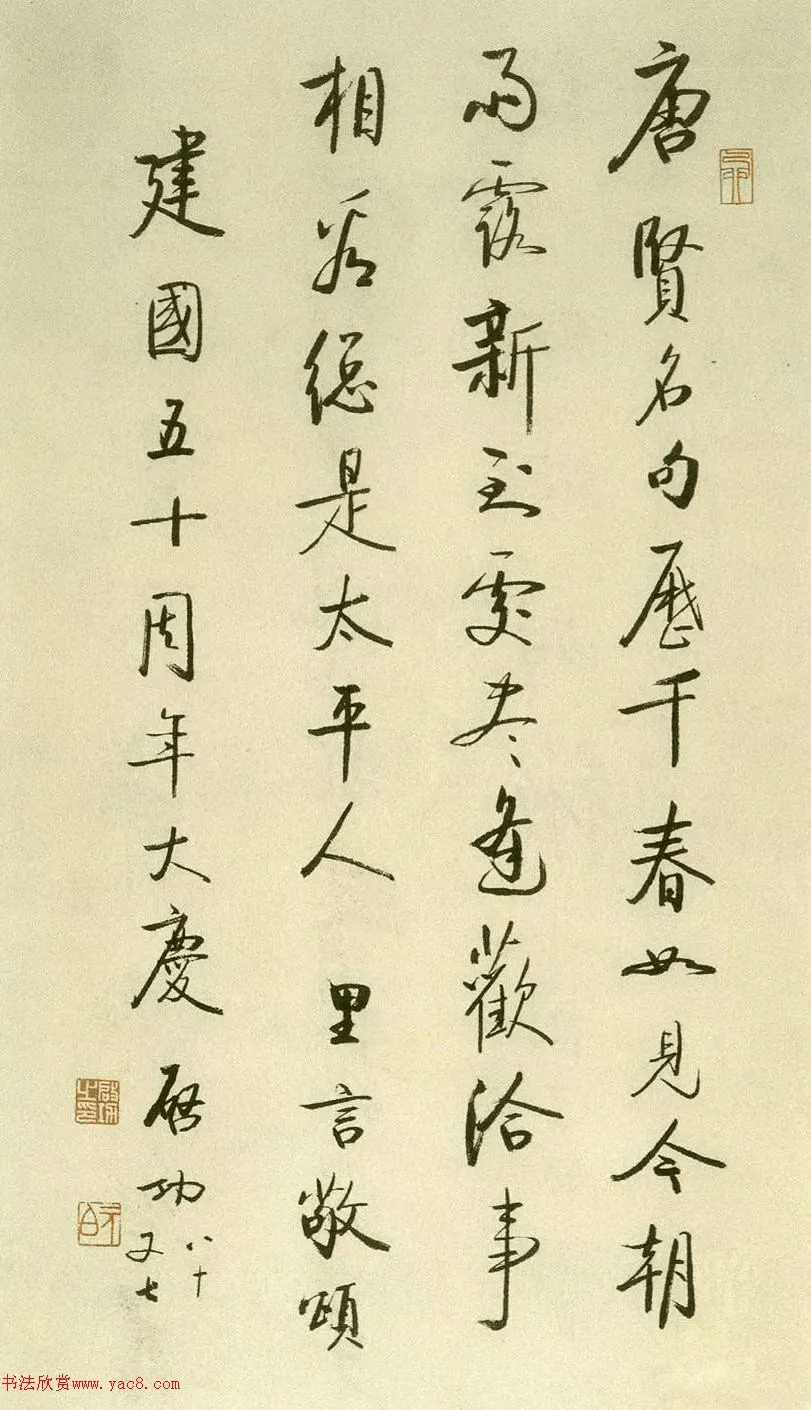 唐賢名句歷千春如見今朝
雨露新到處盡逢歡洽事
相看總是太平人 里言敬頌
建國五十周年大慶 啟功 八十
又七
书法欣赏www.yac8.com